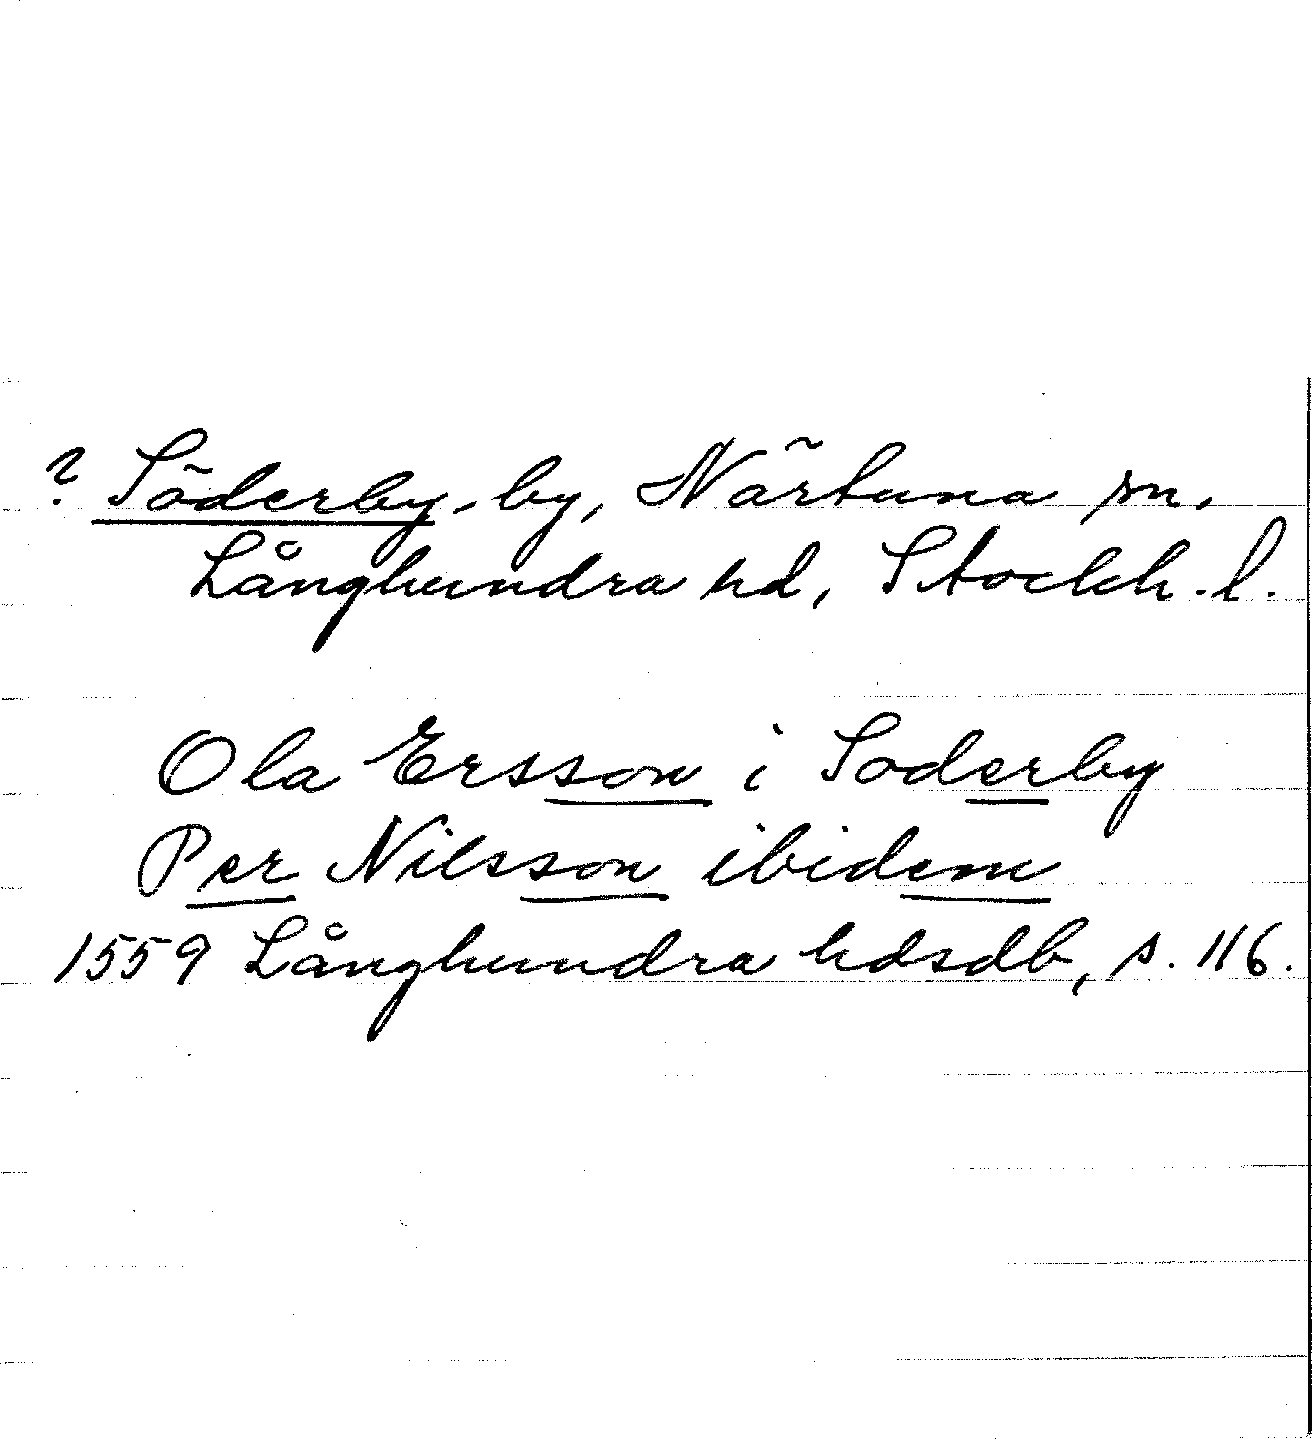 ? Söderby, by, Närtuna sn,
Långhundra hd, Stockh. l.
Ola Ersson i Soderby
Per Nilsson ibidem
1559 Långhundra hdsdb, s. 116.